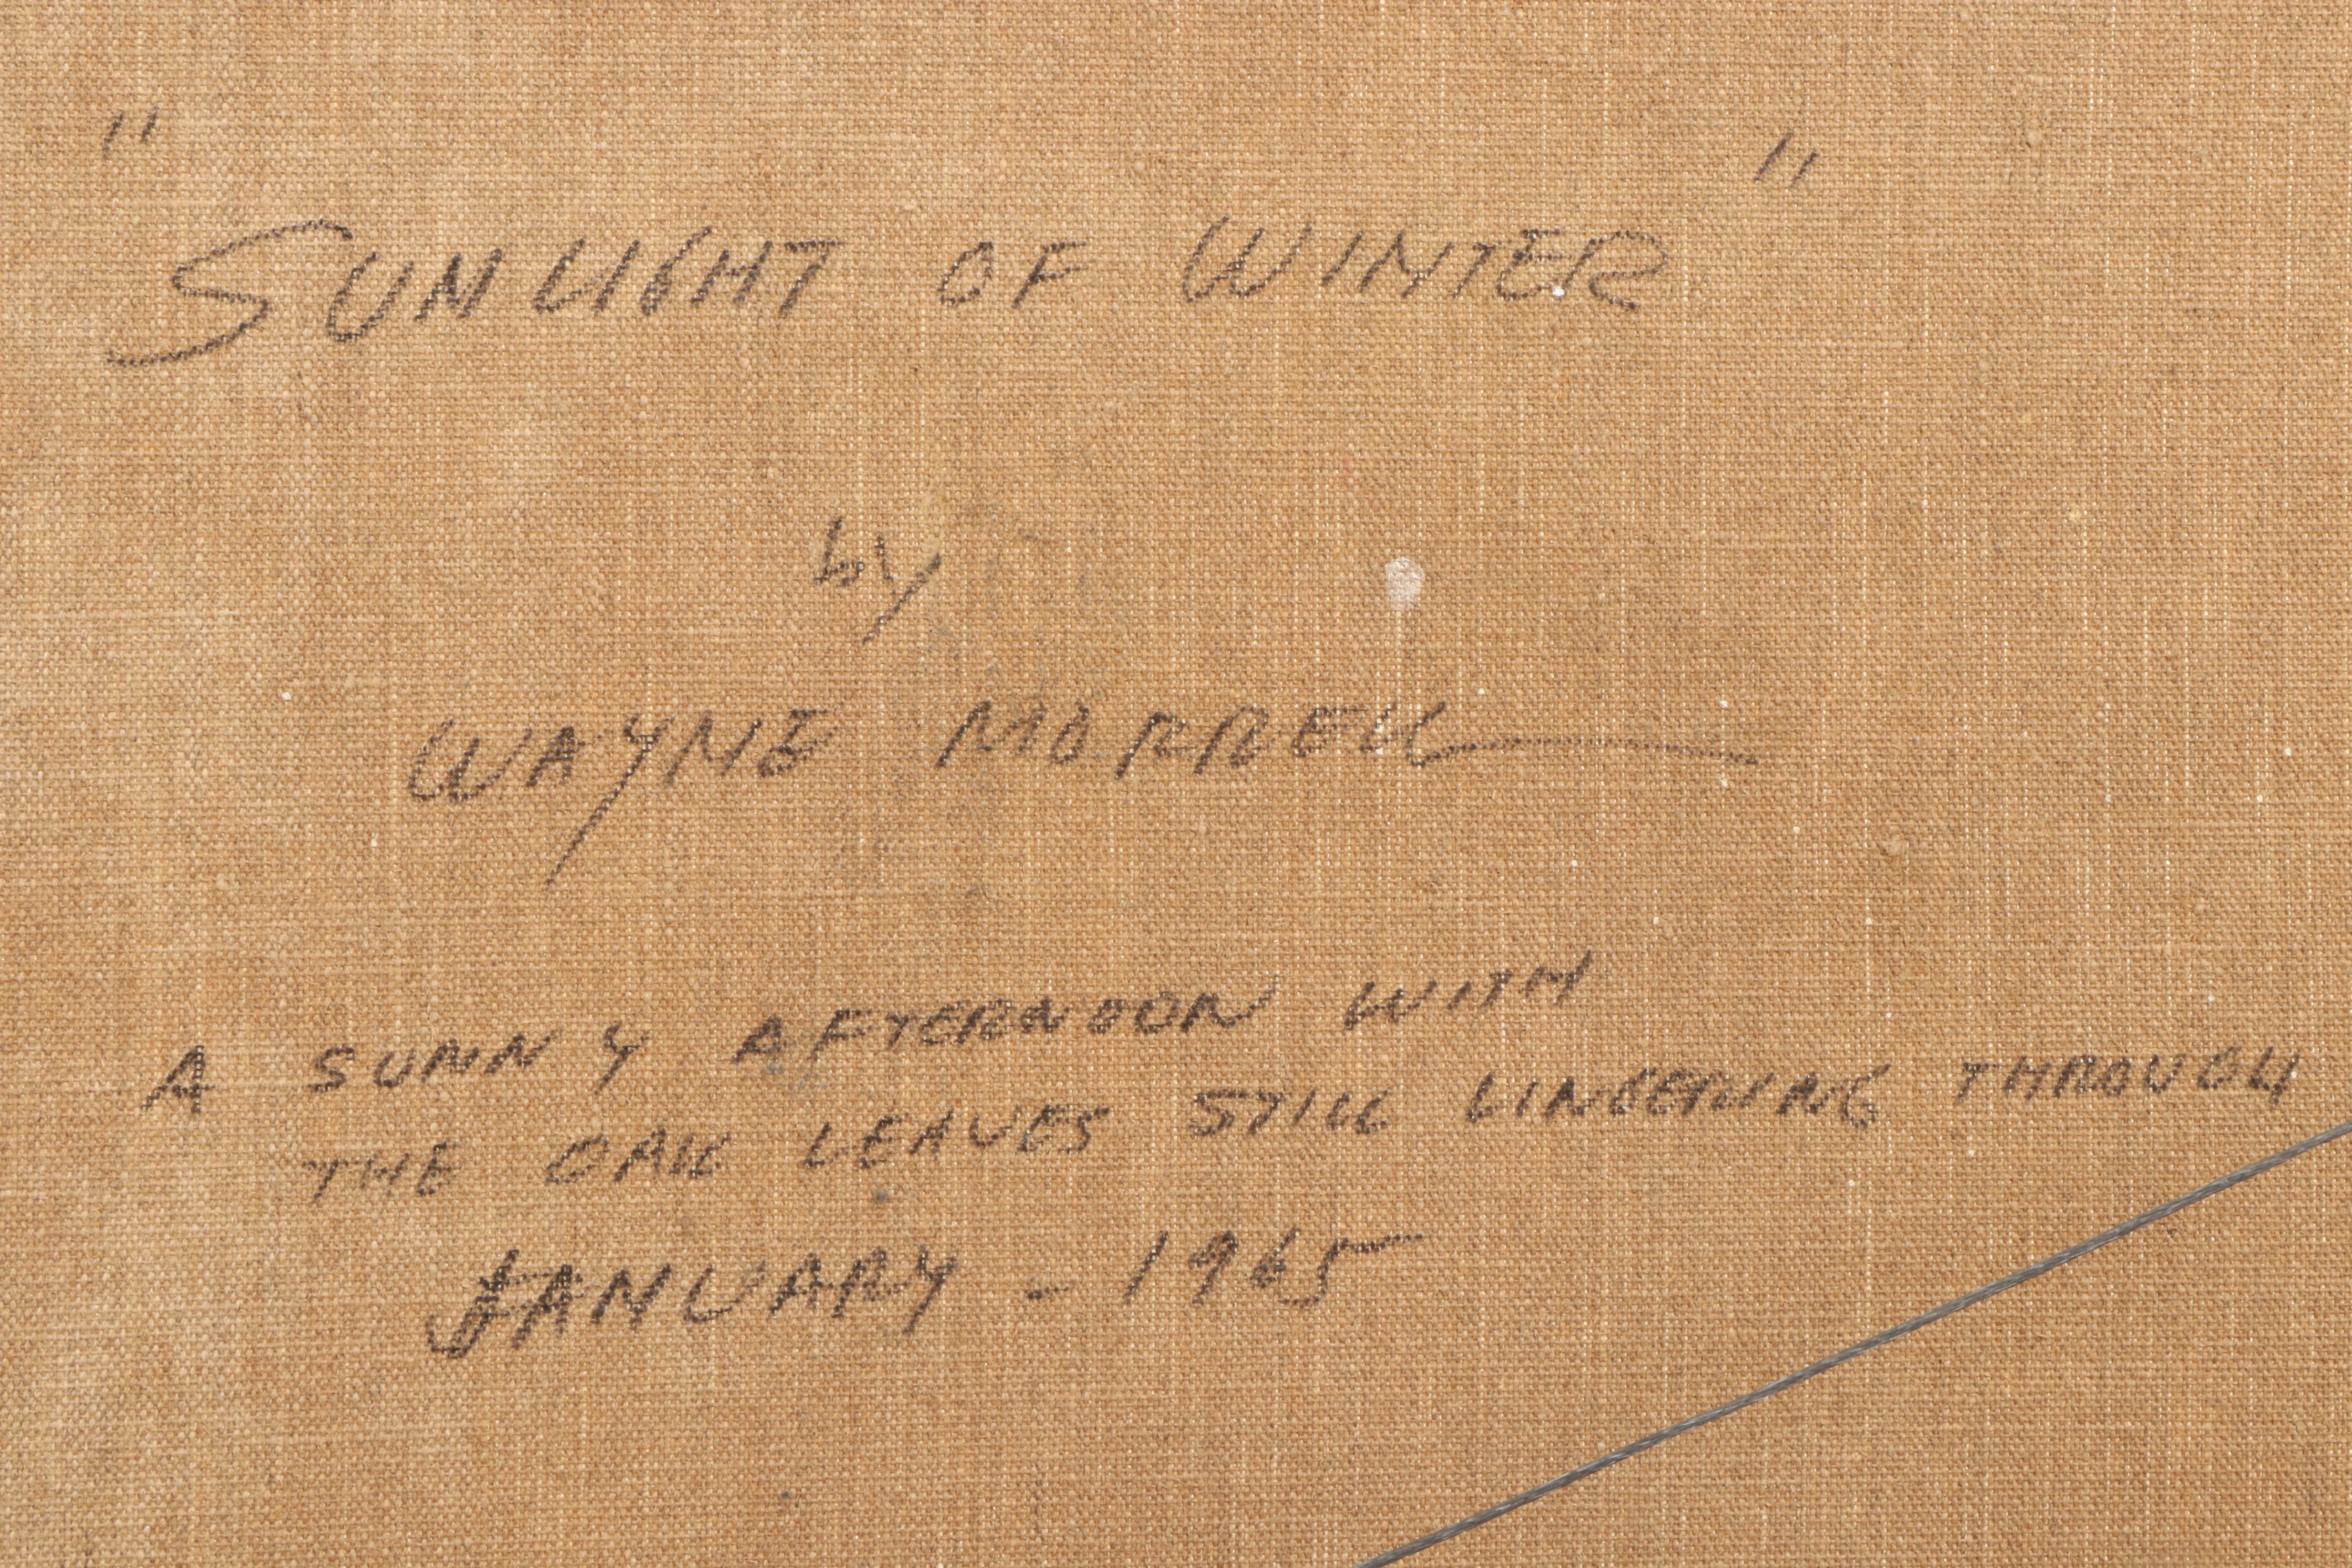 "SUNLIGHT OF WINTER"
by
WAYNE MORRELL
A SUNNY AFTERNOON WITH
THE OAK LEAVES STILL LINGERING THROUGH
JANUARY - 1965